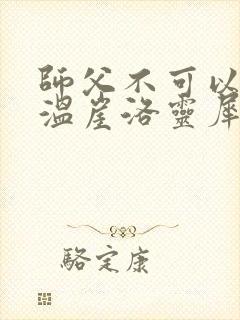 師父不可以
溫崖洛靈犀
駱定康